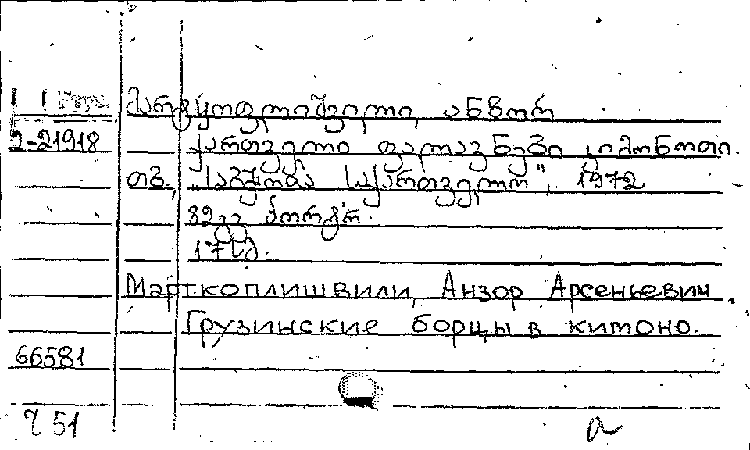 მარტყოფლიშვილი, ანზორ
2-21918 ქართველი ფალავნები კიმონოთი.
თბ., "საბჭოთა საქართველო", 1972
32 გვ პორტრ.
17 სმ.
Марткоплишвили, Анзор Арсеньевич.
Грузинские борцы в кимоно.
66581
751